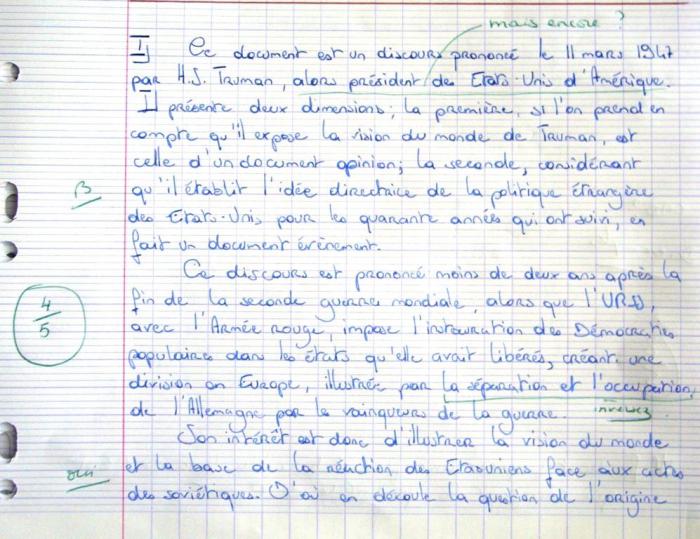 mais encore ?
I) Ce document est un discours prononcé le 11 mars 1947
par H.S. Truman, alors président des Etats-Unis d'Amérique.
Il présente deux dimensions; la première, si l'on prend en
compte qu'il expose la vision du monde de Truman, est
celle d'un document opinion; la seconde, considérant
B
qu'il établit l'idée directrice de la politique étrangère
des Etats-Unis pour les quarante années qui ont suivi, en
fait un document évènement.
Ce discours est prononcé moins de deux ans après la
4/5
fin de la seconde guerre mondiale, alors que l'URSS,
avec l'Armée rouge, impose l'instauration des Démocraties
populaires dans les états qu'elle avait libérés, créant une
division en Europe, illustrée par la séparation et l'occupation,
de l'Allemagne par les vainqueurs de la guerre. inversez
Son intérêt est donc d'illustrer la vision du monde
oui
et la base de la réaction des Etasuniens face aux actes
des soviétiques. D'où en découle la question de l'origine